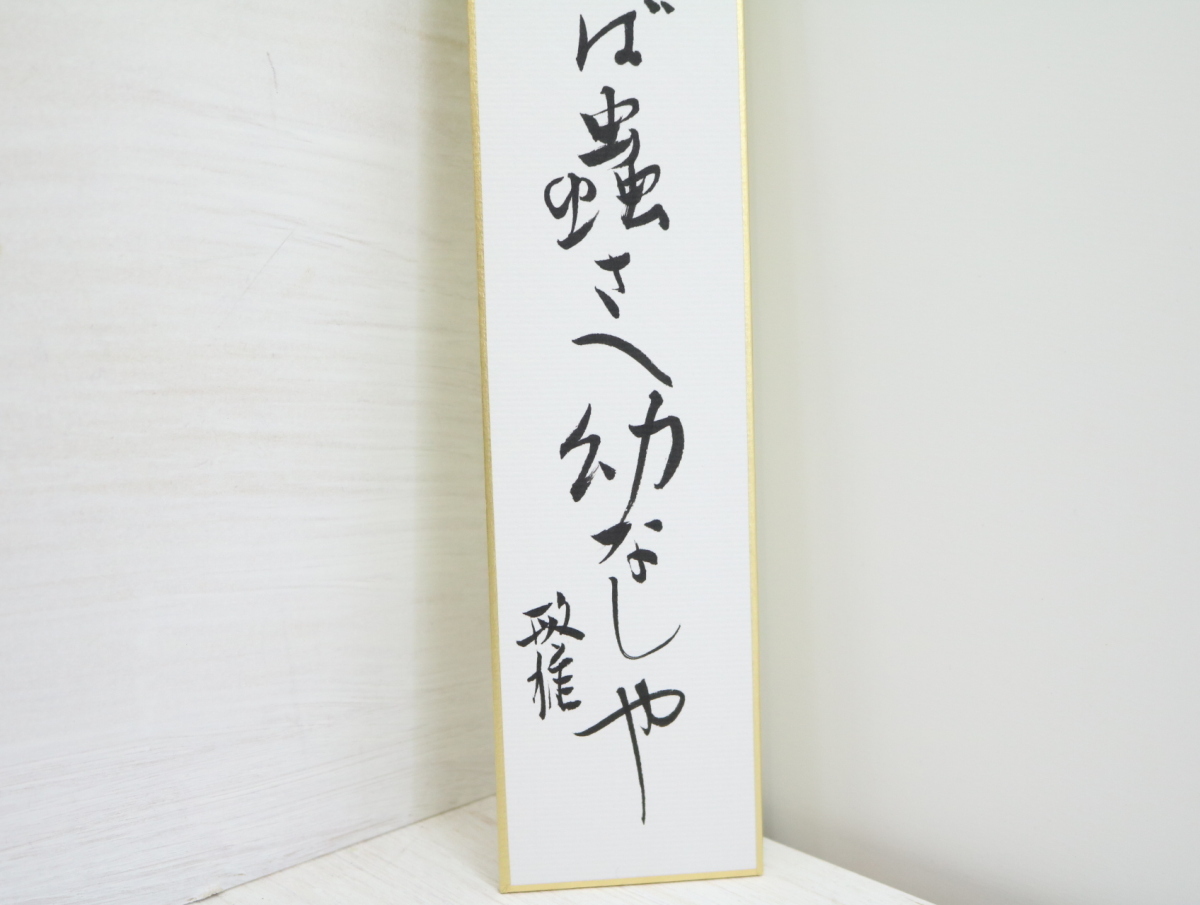 ば蟲さへ幼なしや
政雄